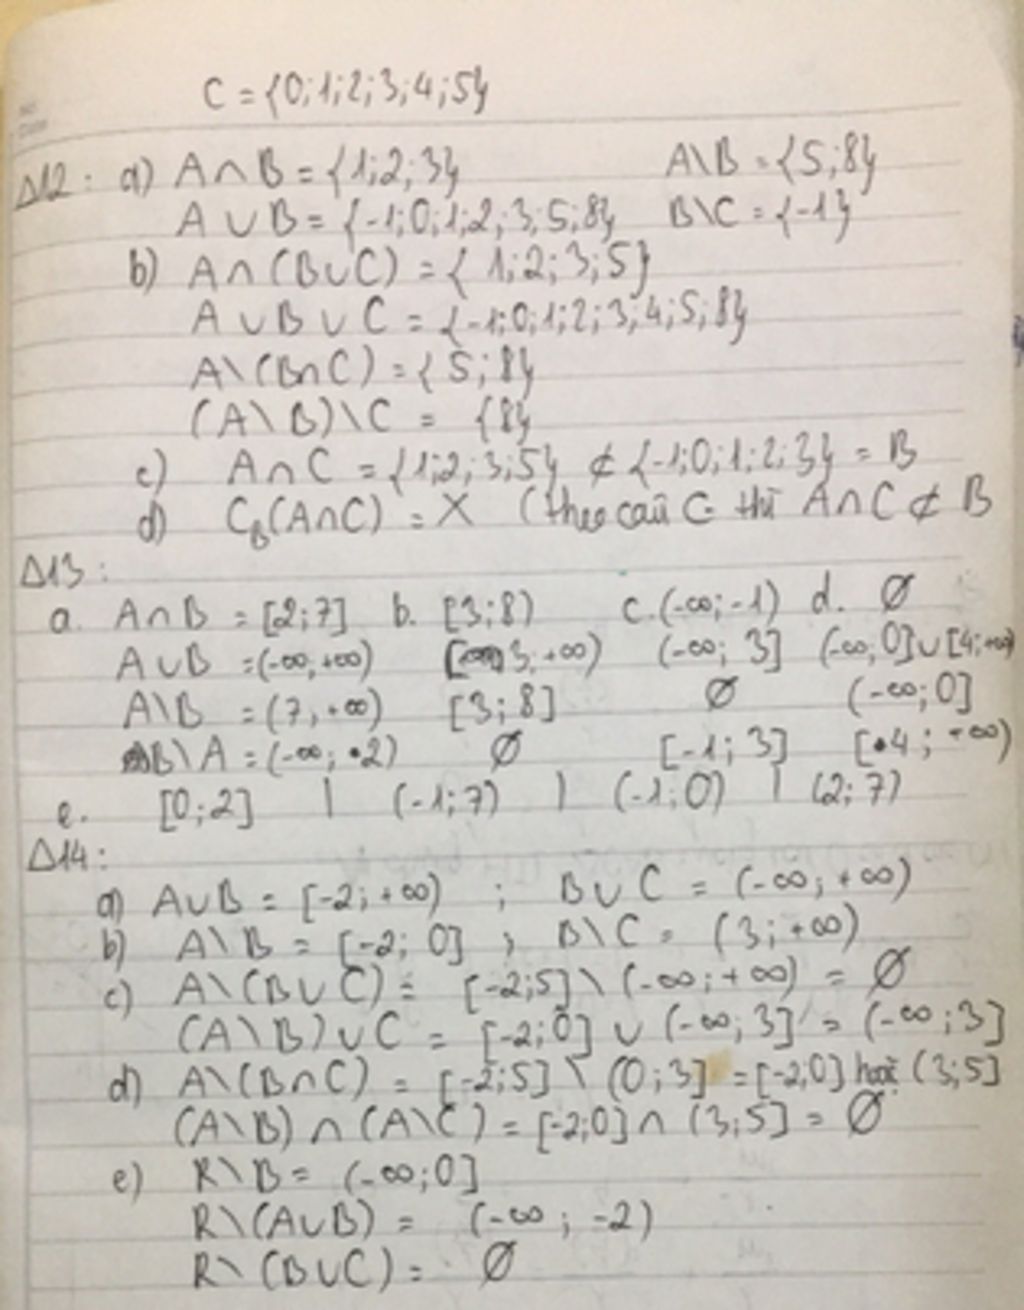 C = {0;1;2;3;4;5}
Δ12: a) A∩B = {1;2;3} A\B = {5;8}
A∪B = {-1;0;1;2;3;5;8} B\C = {-1}
b) A∩(B∪C) = {1;2;3;5}
A∪B∪C = {-1;0;1;2;3;4;5;8}
A\(B∩C) = {5;8}
(A\B)\C = {8}
c) A∩C = {1;2;3;5} ⊄ {-1;0;1;2;3} = B
d) C_B(A∩C) = X (theo câu C thì A∩C ⊄ B
Δ13:
a. A∩B = [2;7] b. [3;8) c. (-∞;-1) d. ∅
A∪B = (-∞,+∞) [3;+∞) (-∞; 3] (-∞;0]∪[4;+∞)
A\B = (7,+∞) [3;8] ∅ (-∞;0]
B\A = (-∞; 2) ∅ [-1; 3] [4; +∞)
e. [0;2] | (-1;7) | (-1;0) | (2;7)
Δ14:
a) A∪B = [-2;+∞) ; B∪C = (-∞;+∞)
b) A\B = [-2; 0] ; B\C = (3;+∞)
c) A\(B∪C) = [-2;5] \ (-∞;+∞) = ∅
(A\B)∪C = [-2;0] ∪ (-∞;3] = (-∞;3]
d) A\(B∩C) = [-2;5] \ (0;3] = [-2,0] hoặc (3;5]
(A\B)∩(A\C) = [-2;0]∩(3;5] = ∅
e) R\B = (-∞;0]
R\(A∪B) = (-∞; -2)
R\(B∪C) = ∅